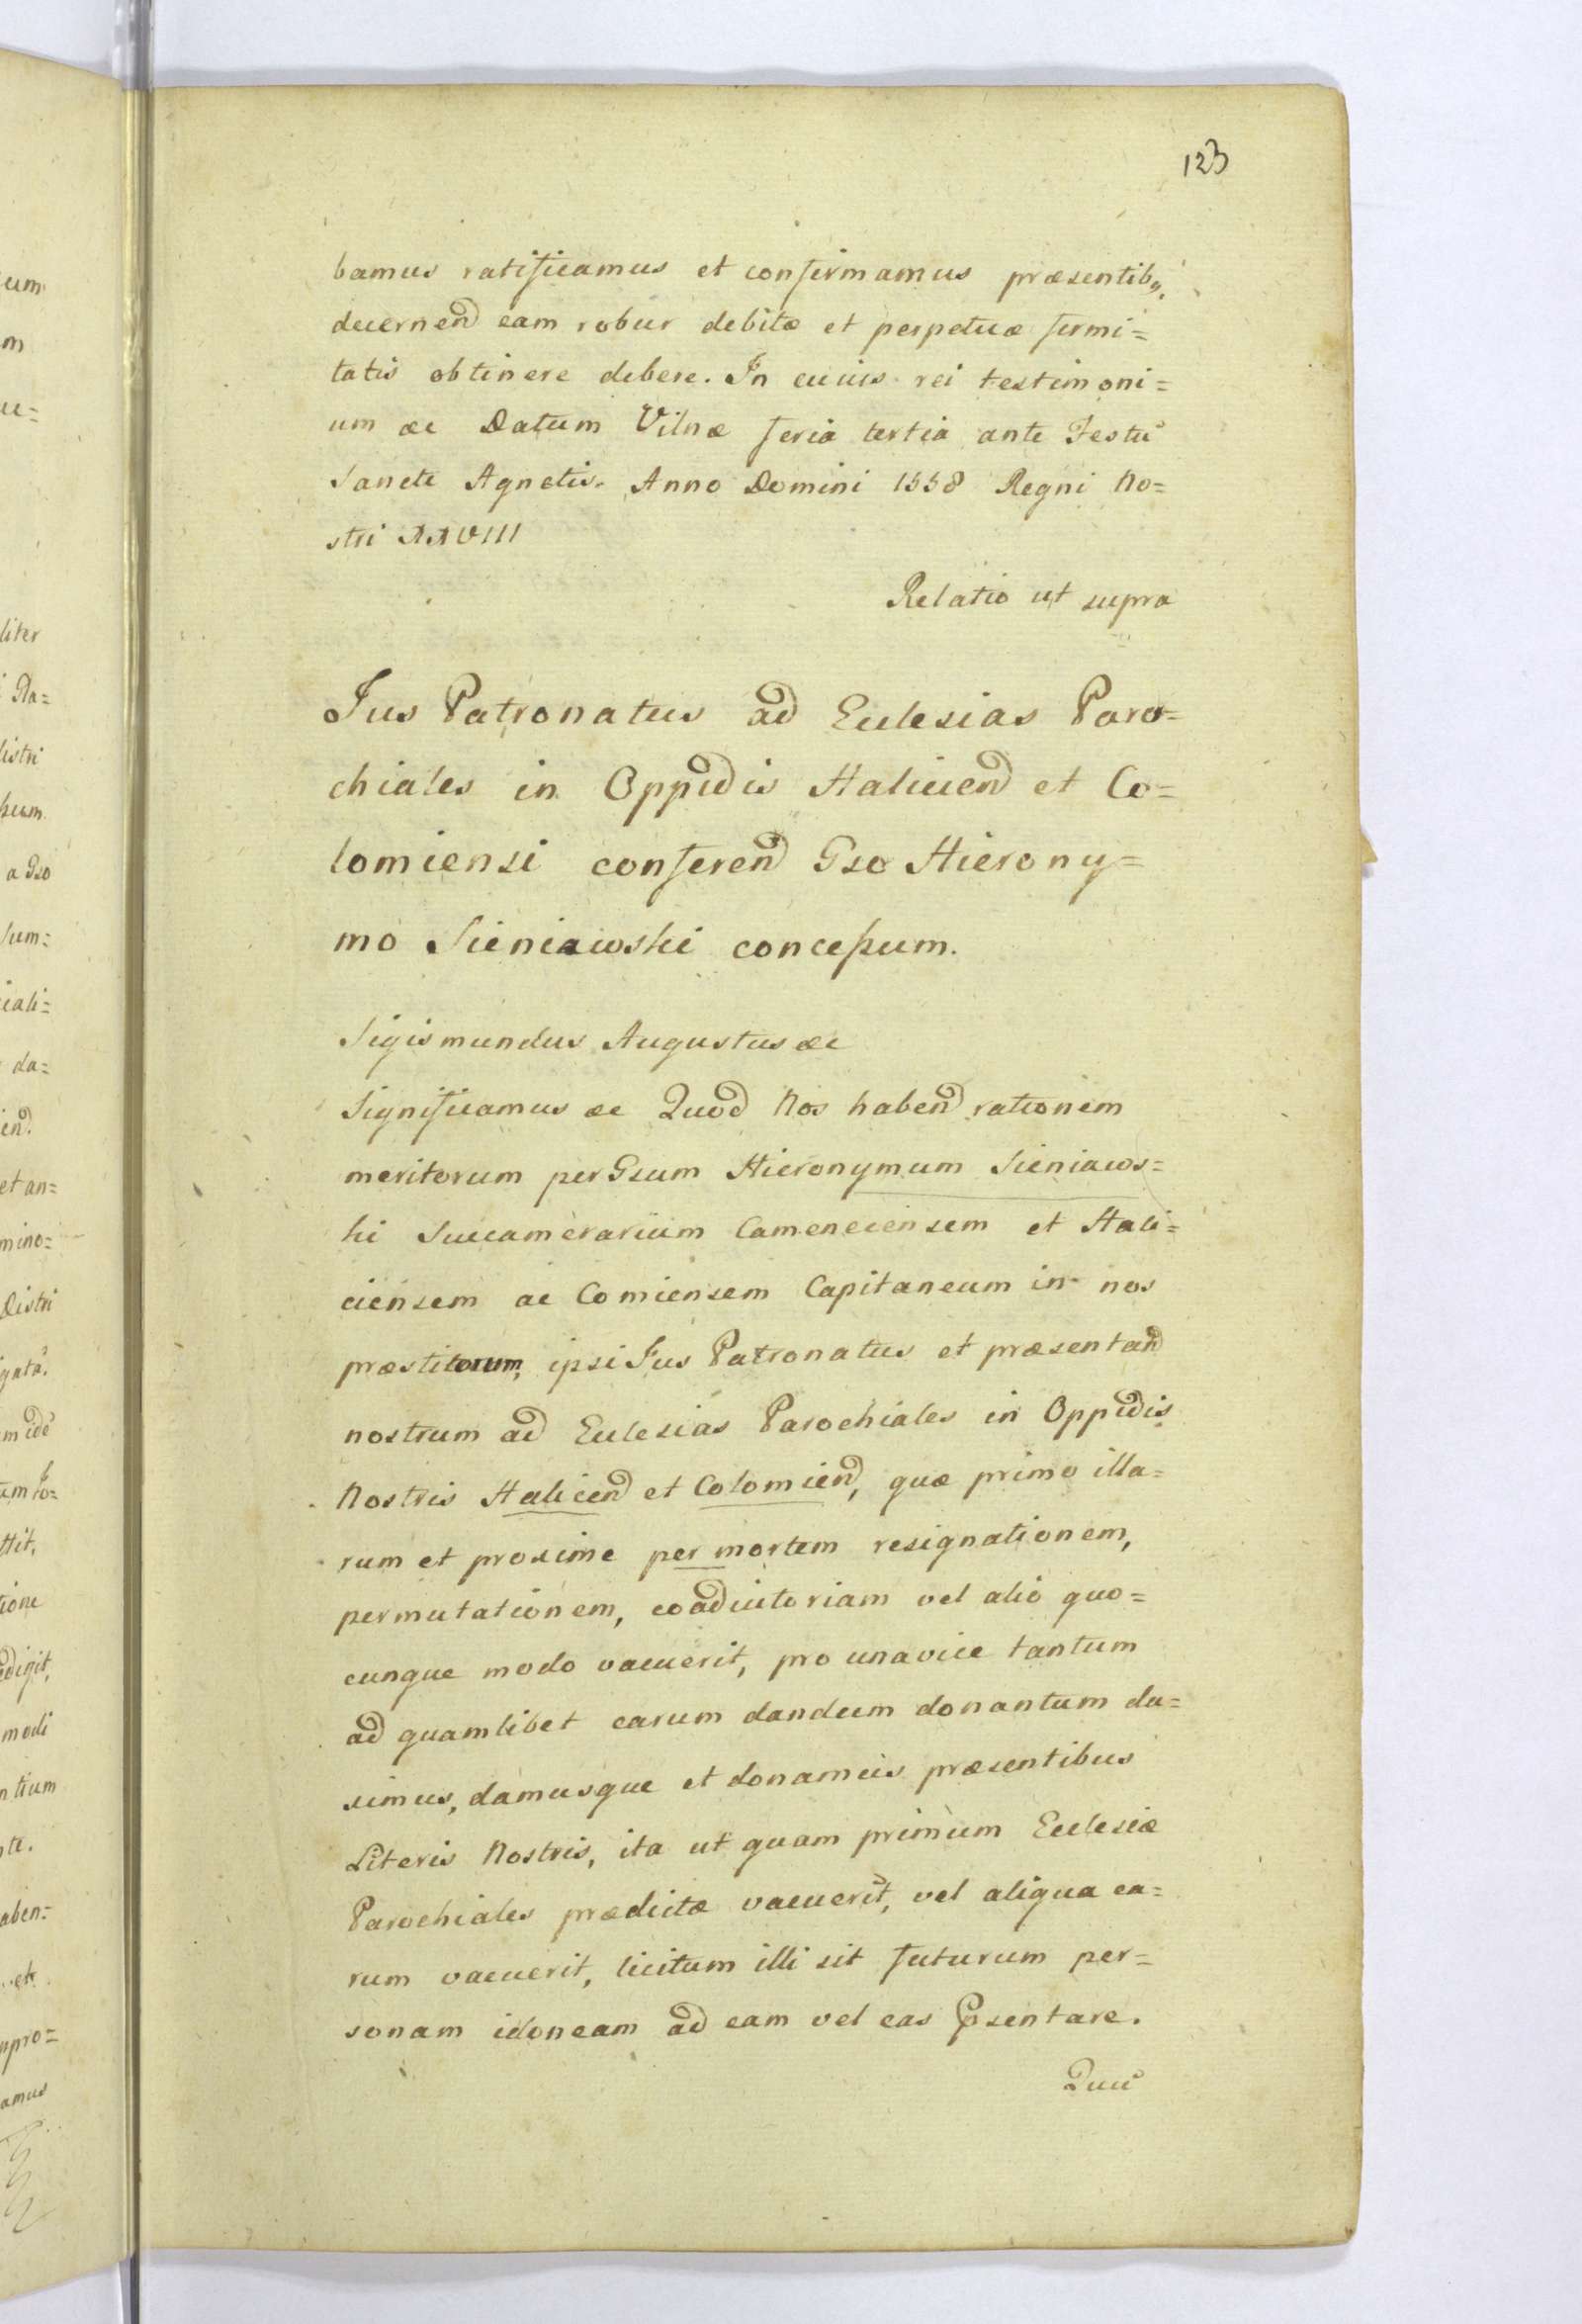 123
bamus ratificamus et confirmamus præsentibq,
decernend eam robur debitæ et perpetuæ firmi=
tatis obtinere debere. In cuius rei testimoni=
um &c Datum Vilnæ feria tertia ante Festũ
Sancte Agnetis. Anno Domini 1558 Regni No=
stri XXVIII
Relatio ut supra
Jus Patronatus ad Ecclesias Paro=
chiales in Oppidis Haliciend et Co=
lomiensi conferend Gso Hierony=
mo Sieniawski concessum.
Sigismundus Augustus &c
Significamus &c Quod Nos habend rationem
meritorum per Gsum Hieronymum Sieniaws=
ki Succamerarium Cameneciensem et Hali=
ciensem ac Comiensem Capitaneum in nos
præstitorum, ipsi Jus Patronatus et præsentand
nostrum ad Ecclesias Parochiales in Oppidis
Nostris Haliciend et Colomiend, quæ primo illa=
rum et proxime per mortem resignationem,
permutationem, coadiutoriam vel alio quo=
cunque modo vacuerit, pro una vice tantum
ad quamlibet earum dandum donantum du=
ximus, damusque et donamus præsentibus
Literis Nostris, ita ut quam primum Ecclesiæ
Parochiales prædictæ vacuerit, vel aliqua ea=
rum vacuerit, licitum illi sit futurum per=
sonam idoneam ad eam vel eas Psentare.
Quũ
um
m
liter
listri
a Gso
Sum=
iali=
da=
et an=
mino=
Distri
ttit,
tione
modi
ntium
aben=
amus